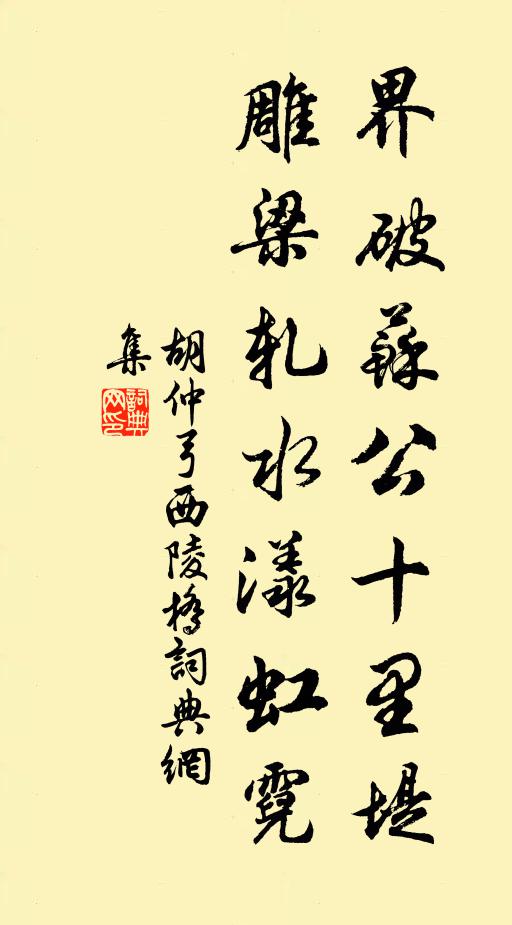 界破蘇公十里堤
雕梁軋水漾虹霓
胡仲弓西陵橋詞典網
集
詞典網印